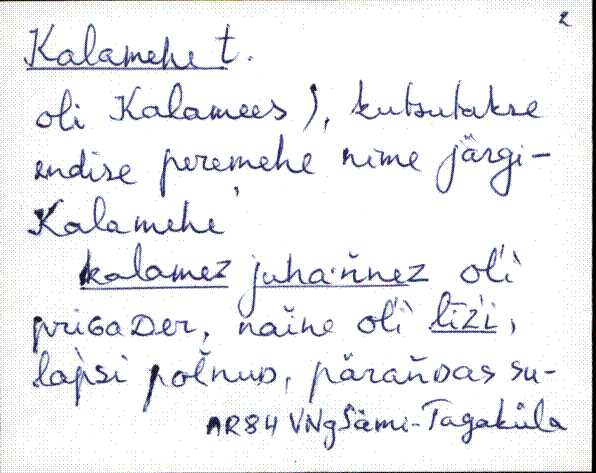 2
Kalamehe t.
oli Kalamees), kutsutakse
endise peremehe nime järgi -
Kalamehe
kalamez juha·ňnez oĺi
priGaDer, naĭne oĺi līźi,
lapsi polnuD, päraňDas su-
AR84 VNg Sämi-Tagaküla